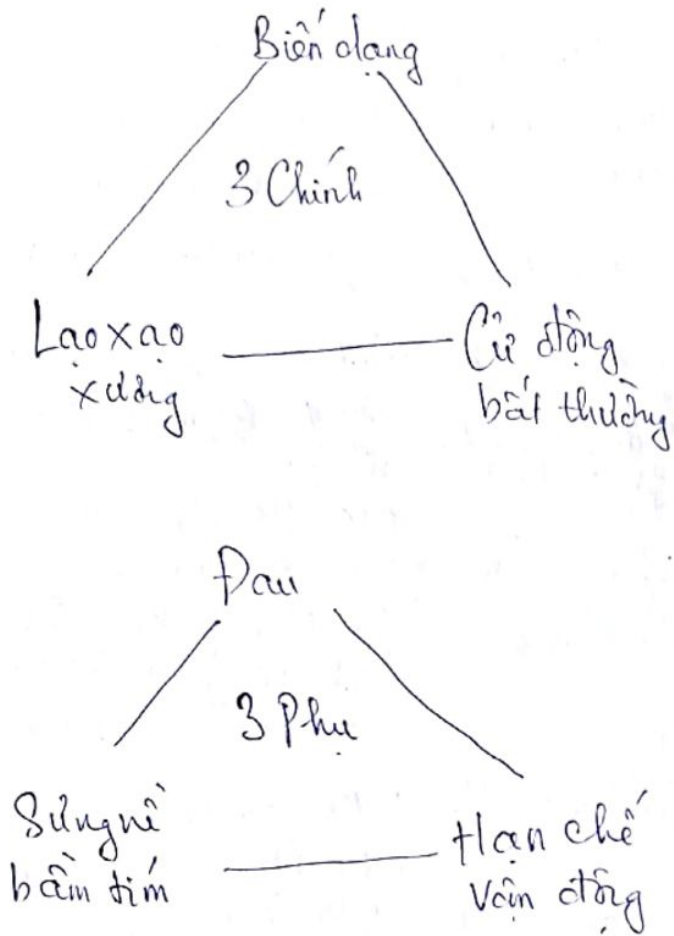 Biến dạng
3 Chính
Lạo xạo
xương
Cử động
bất thường
Đau
3 Phụ
Sưng nề
bầm tím
Hạn chế
vận động